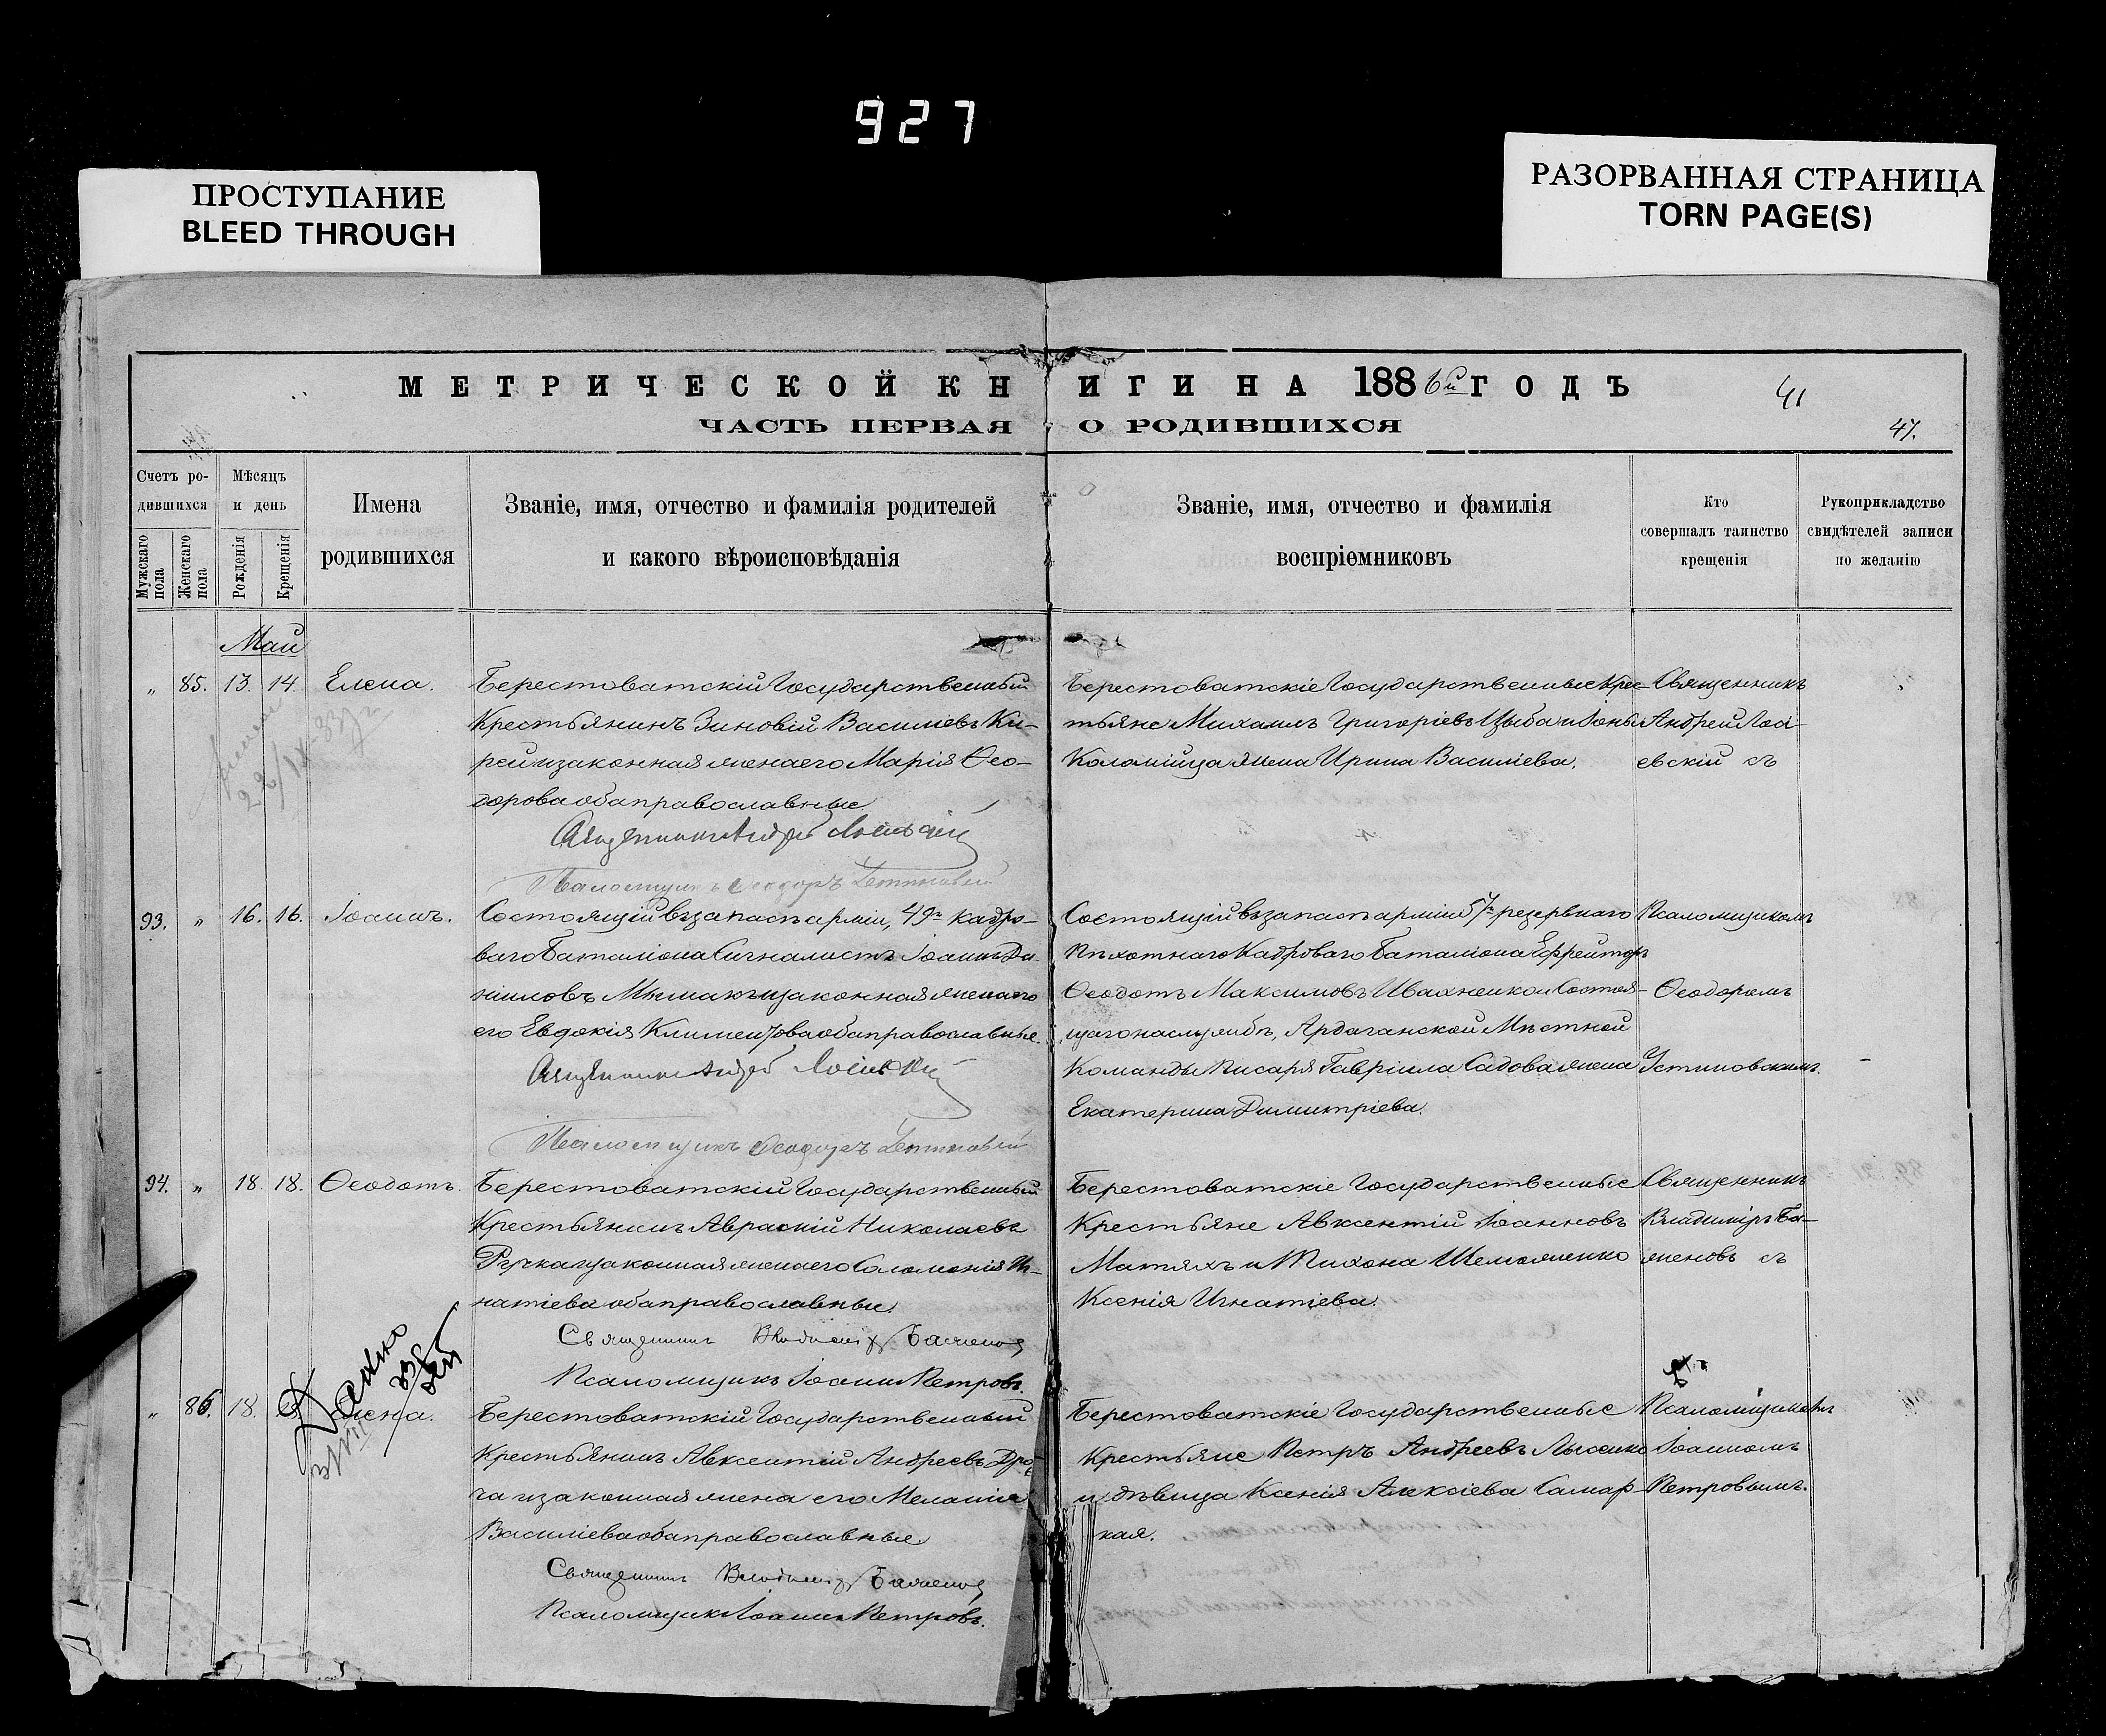 927
ПРОСТУПАНИЕ
BLEED THROUGH
РАЗОРВАННАЯ СТРАНИЦА
TORN PAGE(S)
МЕТРИЧЕСКОЙ КНИГИ НА 1886й ГОДЪ
41
ЧАСТЬ ПЕРВАЯ О РОДИВШИХСЯ
47.
Счетъ ро-
дившихся
Мужскаго пола
Женскаго пола
Мѣсяцъ
и день
Рожденія
Крещенія
Имена
родившихся
Званіе, имя, отчество и фамилія родителей
и какого вѣроисповѣданія
Званіе, имя, отчество и фамилія
воспріемниковъ
Кто
совершалъ таинство
крещенія
Рукоприкладство
свидѣтелей записи
по желанію
Май
" 85. 13. 14. Елена.
Берестоватскій Государственный
Крестьянинъ Зиновій Василіевъ Ки-
рей и законная жена его Марія Ѳео-
дорова оба православные.
Берестоватскіе Государственные Крес-
тьяне Михаилъ Григоріевъ Цыба и Іоны
Коломійца жена Ирина Василіева.
Священникъ
Андрей
евскій съ
Псаломщикъ Ѳеодоръ Устиновскій
93. " 16. 16. Іоаннъ.
Состоящій въ запасѣ арміи, 49го кадро-
ваго Баталіона Сигналистъ Іоаннъ Да-
ніиловъ и законная жена
его Евдокія Климентова оба православные.
Состоящій въ запасѣ арміи 57го резервнаго
Пѣхотнаго Кадроваго Баталіона Ефрейторъ
Ѳеодотъ Максимовъ Ивахненко и Состоя-
щаго на службѣ, Ардаганской Мѣстной
Команды Писаря Гавріила Садова жена
Екатерина Димитріева.
Псаломщикомъ
Ѳеодоромъ
Устиновскимъ.
Псаломщикъ Ѳеодоръ Устиновскій
94. " 18. 18. Ѳеодотъ.
Берестоватскій Государственный
Крестьянинъ Николаевъ
и законная жена его Соломонія Иг-
натіева оба православные.
Священникъ Владиміръ Баженовъ
Псаломщикъ Іоаннъ Петровъ.
Берестоватскіе Государственные
Крестьяне Авксентій Іоанновъ
Матяхъ и Тихона Шеможенко
Ксенія Игнатіева.
Священникъ
Владиміръ Ба-
женовъ съ
" 86. 18.
Берестоватскій Государственный
Крестьянинъ Авксентій Андреевъ
и законная жена его Меланія
Василіева оба православные.
Священникъ Владиміръ Баженовъ
Псаломщикъ Іоаннъ Петровъ.
Берестоватскіе Государственные
Крестьяне Петръ Андреевъ Лысенко
и дѣвица Ксенія Алексіева Самар-
кая.
Псаломщикомъ
Іоанномъ
Петровымъ.